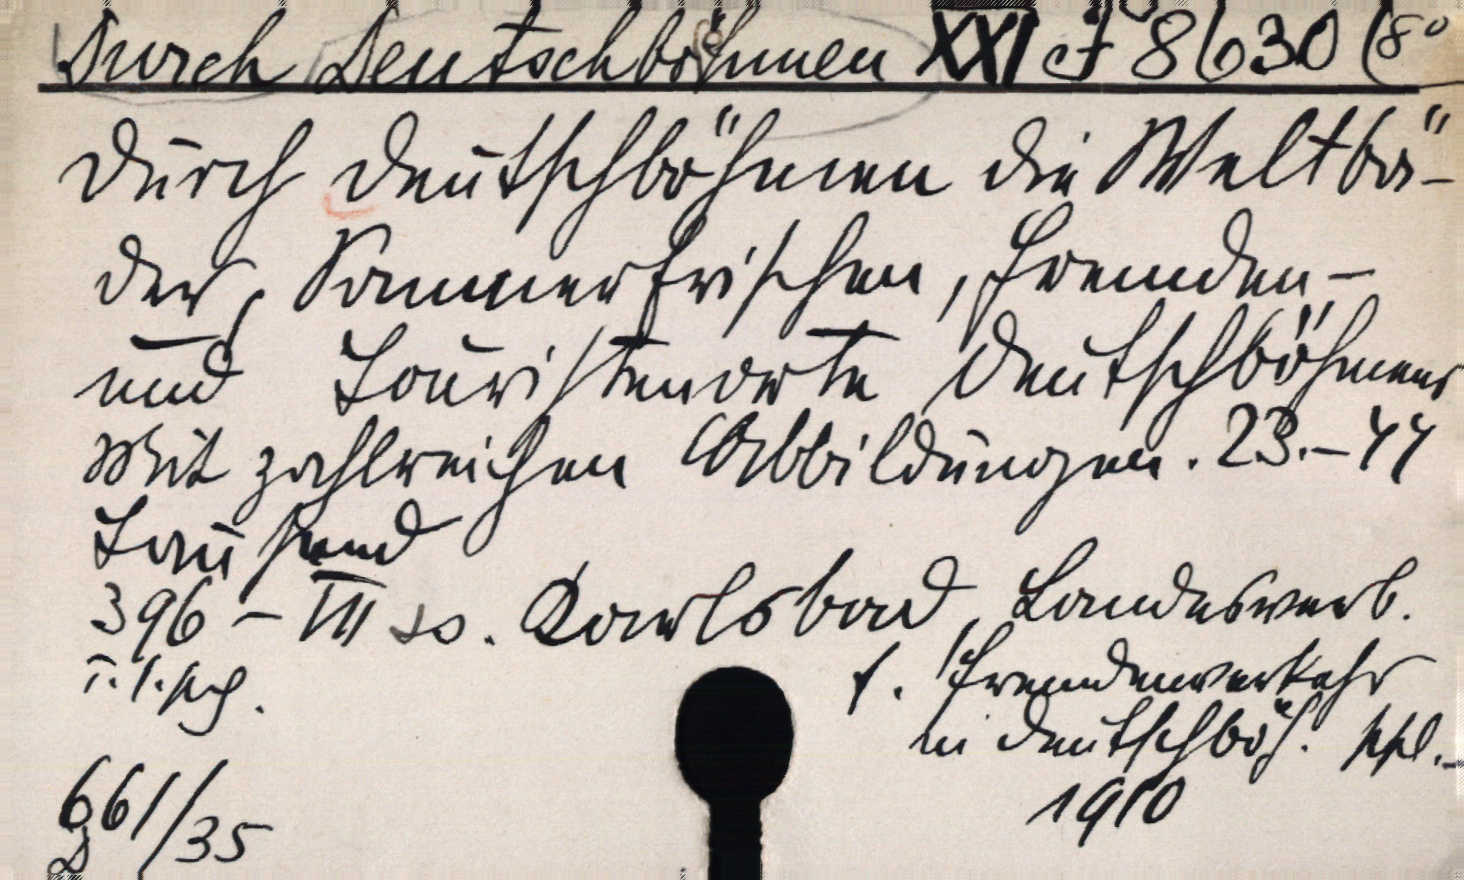 Durch Deutschböhmen XXI J 8630 (8°
Durch Deutschböhmen die Weltbä-
der, Sommerfrischen, Fremden-
und Touristenorte Deutschböhmens
Mit zahlreichen Abbildungen. 23.-44
Tausend
396 - III SS. Karlsbad, Landesverb.
f. Fremdenverkehr
in Deutschböh.
1910
661/35
D